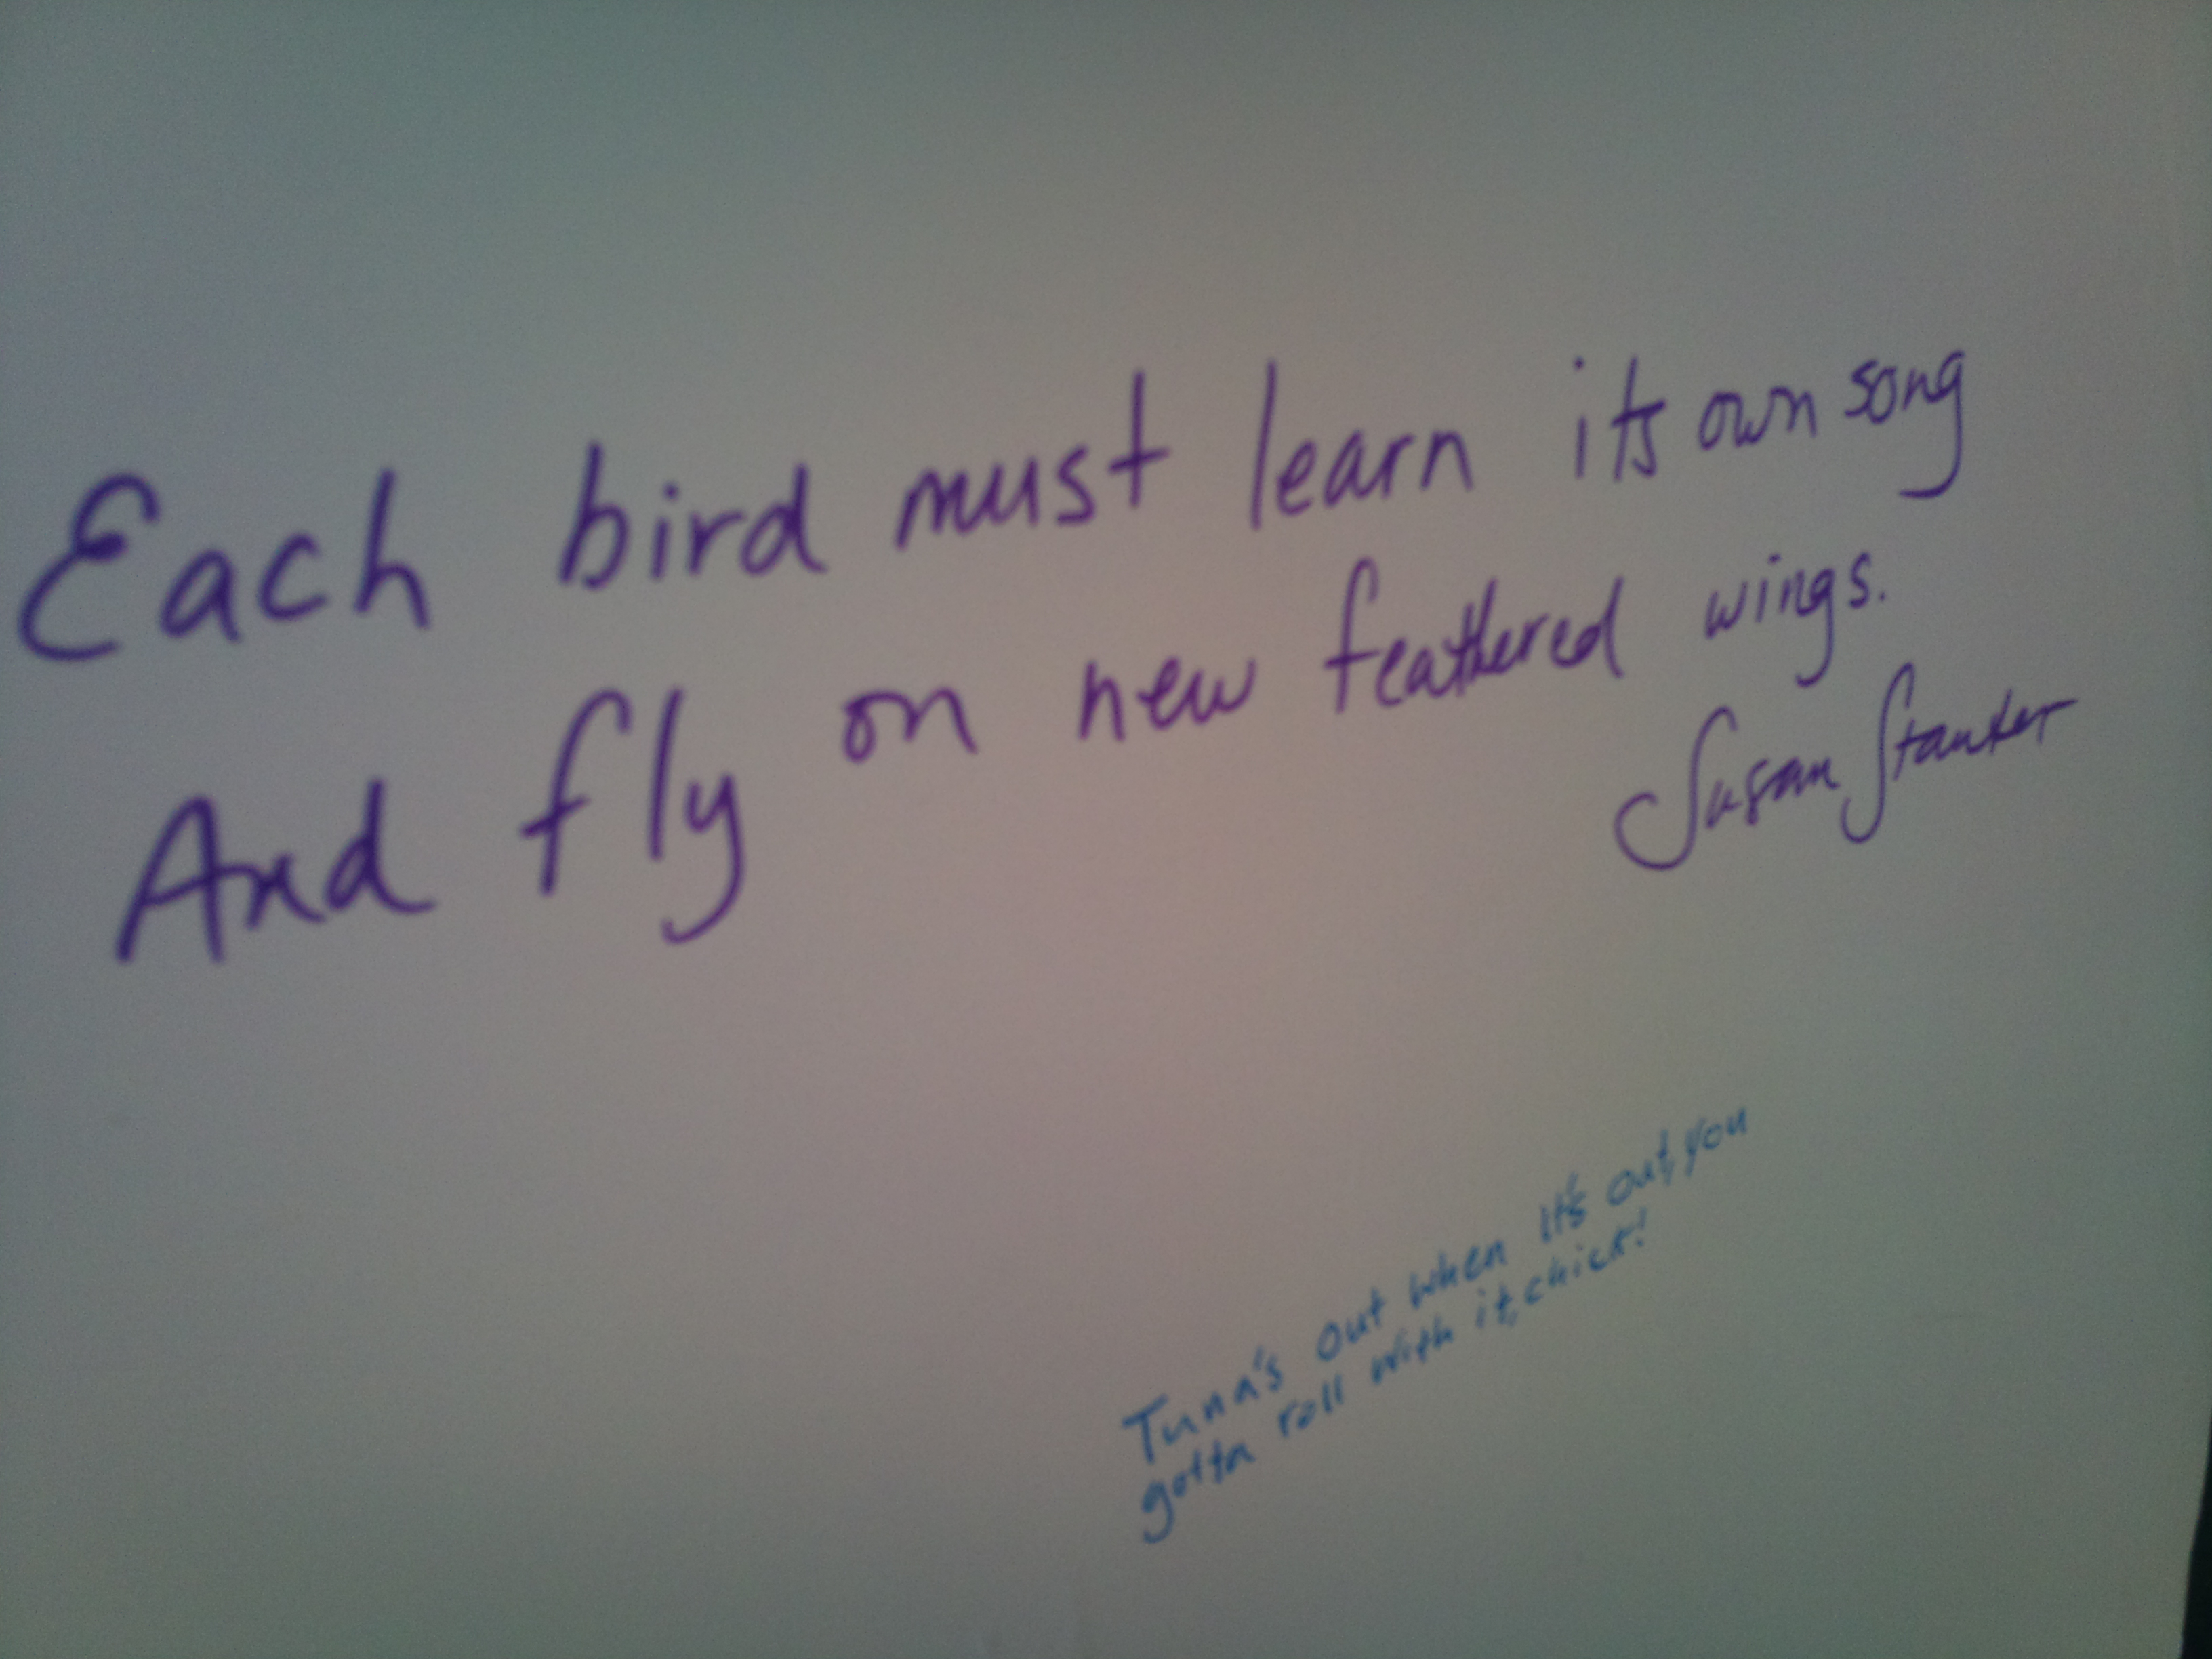 Each bird must learn its own song
And fly on new feathered wings.
Susan Stauter
Tuna's out when it's out, you
gotta roll with it, chick!